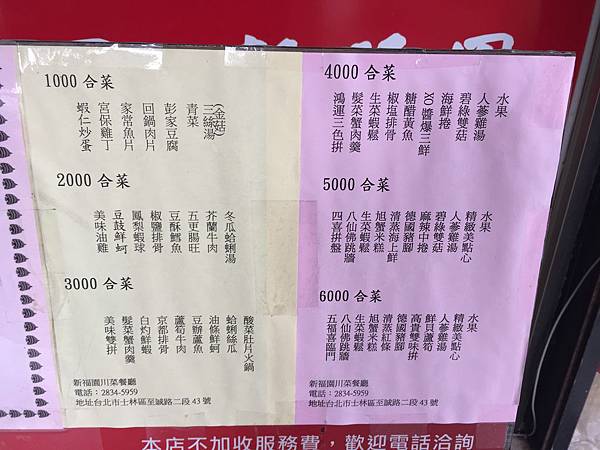 1000 合菜
蝦仁炒蛋
宮保雞丁
家常魚片
回鍋肉片
彭家豆腐
青菜
三絲湯
(金菇)
2000 合菜
美味油雞
豆鼓鮮蚵
鳳梨蝦球
椒鹽排骨
豆酥鱈魚
五更腸旺
芥蘭牛肉
冬瓜蛤蜊湯
3000 合菜
美味雙拼
髮菜蟹肉羹
白灼鮮蝦
京都排骨
蘆筍牛肉
豆瓣鱸魚
油條鮮蚵
蛤蜊絲瓜
酸菜肚片火鍋
新福園川菜餐廳
電話:2834-5959
地址台北市士林區至誠路二段 43 號
4000 合菜
鴻運三色拼
髮菜蟹肉羹
生菜蝦鬆
椒塩排骨
糖醋黃魚
XO醬爆三鮮
海鮮捲
碧綠雙菇
人蔘雞湯
水果
5000 合菜
四喜拼盤
八仙佛跳牆
生菜蝦鬆
旭蟹米糕
清蒸海上鮮
德國豬腳
麻辣中捲
碧綠雙菇
人蔘雞湯
精緻美點心
水果
6000 合菜
五福喜臨門
八仙佛跳牆
生菜蝦鬆
旭蟹米糕
清蒸紅條
德國豬腳
高貴雙味拼
鮮貝蘆筍
人蔘雞湯
精緻美點心
水果
新福園川菜餐廳
電話:2834-5959
地址台北市士林區至誠路二段 43 號
本店不加收服務費,歡迎電話洽詢